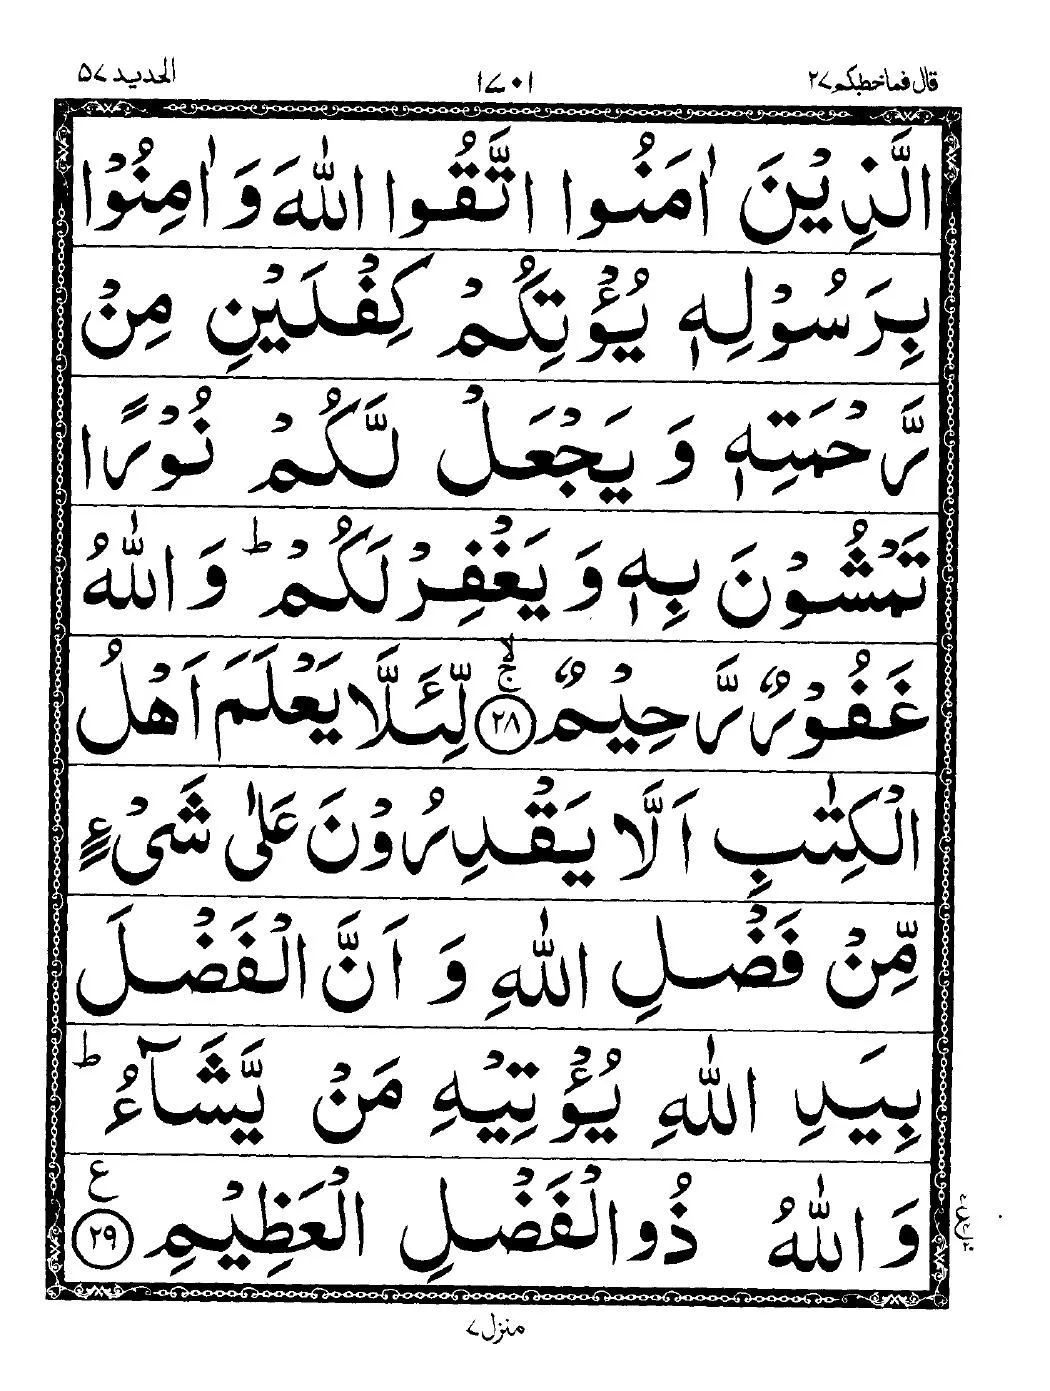 قال فما خطبكم ٢٧
١٧٠١
الحديد ٥٧
الَّذِيْنَ اٰمَنُوا اتَّقُوا اللّٰهَ وَ اٰمِنُوْا
بِرَسُوْلِهٖ يُؤْتِكُمْ كِفْلَيْنِ مِنْ
رَّحْمَتِهٖ وَ يَجْعَلْ لَّكُمْ نُوْرًا
تَمْشُوْنَ بِهٖ وَ يَغْفِرْ لَكُمْ ؕ وَ اللّٰهُ
غَفُوْرٌ رَّحِيْمٌ ۙۚ ﴿٢٨﴾ لِّئَلَّا يَعْلَمَ اَهْلُ
الْكِتٰبِ اَلَّا يَقْدِرُوْنَ عَلٰى شَیْءٍ
مِّنْ فَضْلِ اللّٰهِ وَ اَنَّ الْفَضْلَ
بِيَدِ اللّٰهِ يُؤْتِيْهِ مَنْ يَّشَآءُ ؕ
وَ اللّٰهُ ذُو الْفَضْلِ الْعَظِيْمِ ﴿٢٩﴾ ع
منزل ٧